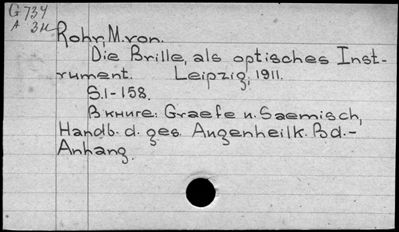 G 734
A 3н
Rohr, M. von.
Die Brille, als optisches Inst-
rument. Leipzig, 1911.
S.1-158.
В книге: Graefe u. Saemisch,
Handb. d. ges. Augenheilk. Bd.-
Anhang.